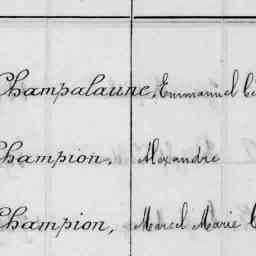 Champalaune, Emmanuel
Champion, Alexandre
Champion, Marcel Marie